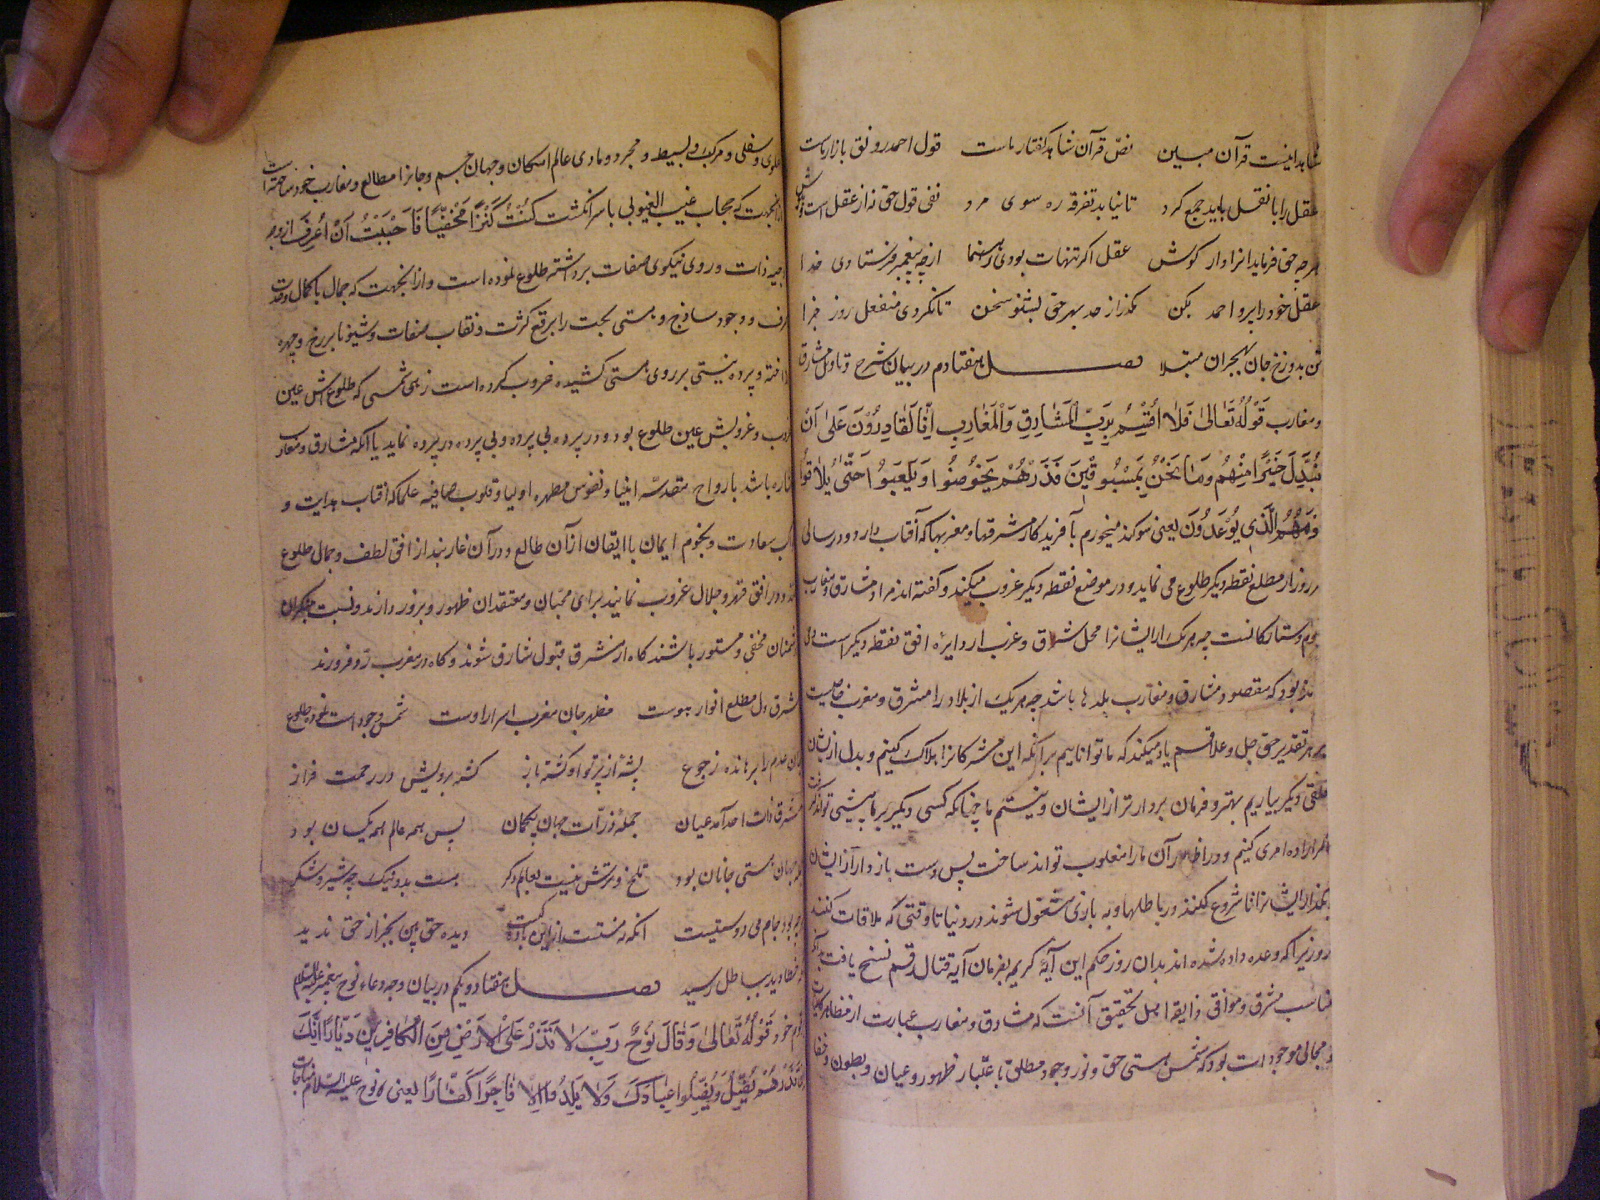 شاهد اینست قرآن مبین نص قرآن شاهد گفتار ماست قول احمد رونق بازار ماست
عقل را با نقل باید جمع کرد تا نیابد تفرقه ره سوی مرد نفی قول حق نه از عقل است
هرچه حق فرماید آنرا دار گوش عقل اگر تنهات بودی رهنما از چه پیغمبر فرستادی خدا
عقل خود را پیرو احمد بکن مگذر از حد بهر حق بشنو سخن تا نگردی منفعل روز جزا
تن بدوزخ جان بهجران مبتلا فصل هفتادم در بیان شرح و تاویل مشارق
و مغارب قَوْلُهُ تَعَالیٰ فَلَا أُقْسِمُ بِرَبِّ الْمَشَارِقِ وَالْمَغَارِبِ إِنَّا لَقَادِرُوْنَ عَلیٰ أَنْ
نُبَدِّلَ خَیْرًا مِنْهُمْ وَمَا نَحْنُ بِمَسْبُوقِیْنَ فَذَرْهُمْ یَخُوضُوا وَیَلْعَبُوا حَتّیٰ یُلَاقُوا
یَوْمَهُمُ الَّذِی یُوعَدُوْنَ یعنی سوکند میخورم بآفریدکار مشرقها و مغربها که آفتاب دارد و در سالی
هر روز از مطلع نقطه دیکر طلوع می نماید و در موضع نقطه دیکر غروب میکند و کفته اند مراد مشارق و مغارب
نجوم و ستارکانست چه هر یک از ایشانرا محل شراق و غرب از دایره افق نقطه دیکر است
بود که مقصود مشارق و مغارب بلدها باشد چه هر یک از بلاد را مشرق و مغرب خاصیست
بهر تقدیر حق جل و علا قسم یاد میکند که ما تواناییم بر آنکه این مشرکانرا هلاک کنیم و بدل ازیشان
خلقی دیکر بیاریم بهتر و فرمان بردارتر از ایشان و نیستیم ما چنانکه کسی دیکر بر ما پیشی تواند
اگر اراده امری کنیم و در اظهار آن ما را مغلوب تواند ساخت پس دست باز دار از ایشان
بگذار ایشانرا تا شروع کنند در باطلها و به بازی مشغول شوند در دنیا تا وقتی که ملاقات کنند
روزیرا که وعده داده شده اند بدان روز حکم این آیهٔ کریم بفرمان آیه قتال رقم نسخ یافت
مناسب مشرق و موافق ذایقه اهل تحقیق آنست که مشارق و مغارب عبارت از مظاهر
و مجالی موجودات بود که شمس هستی حق و نور وجود مطلق باعتبار ظهور و عیان و بطون و خفا
علوی و سفلی و مرکب و بسیط و مجرد و مادی عالم امکان و جهان جسم و جانرا مطالع و مغارب خود ساخته است
ازآنجهت که حجاب غیب الغیوبی باسر انکشت کُنْتُ کَنْزًا مَخْفِیًّا فَأَحْبَبْتُ أَنْ أُعْرَفَ از وجه
ذات و روی نیکوی صفات برداشته طلوع نموده است و ازآنجهت که جمال با کمال وحدت
صرف و وجود ساذج و هستی بحت را برقع کثرت و نقاب صفات و شیونا بر رخ و چهره
انداخته و پرده نیستی بر روی هستی کشیده غروب کرده است زهی شمسی که طلوعش عین
غروب و غروبش عین طلوع بود و در پرده بی پرده و بی پرده در پرده نماید یا آنکه مشارق و مغارب
اشاره باشد بارواح مقدسه انبیا و نفوس مطهره اولیا و قلوب صافیه علما که آفتاب هدایت و
سعادت و نجوم ایمان با ایقان از آن طالع و در آن غاربند از افق لطف و جمال طلوع
و در افق قهر و جلال غروب نمایند برای محبان و معتقدان ظهور و بروز دارند و نسبت بمنکران
دشمنان مخفی و مستور باشند کاه از مشرق قبول شارق شوند و کاه در مغرب رد فروروند
مشرق دل مطلع انوار هوست مظهر جان مغرب اسرار اوست شمس وجود است طلوع
عدم را برهانده ز رجوع پشه از پرتو او کشته باز کشته برویش در رحمت فراز
مشرق ذات احد آمد عیان جمله ذرات جهان بیکمان پس همه عالم همه یکسان بود
جهان هستی جانان بود تلخ و ترش نیست بعالم دکر هست بد و نیک چو شیر و شکر
بود جام می دوستیست انکه نه مستست ازین باده کیست دیده حق بین بجز از حق ندید
خطا دید بباطل رسید فصل هفتاد و یکم در بیان وجه دعاء نوح پیغمبر علیه السلام
قوم خود قَوْلُهُ تَعَالیٰ وَقَالَ نُوْحٌ رَبِّ لَا تَذَرْ عَلَی الْأَرْضِ مِنَ الْکَافِرِیْنَ دَیَّارًا إِنَّکَ
إِنْ تَذَرْهُمْ یُضِلُّوا عِبَادَکَ وَلَا یَلِدُوا إِلَّا فَاجِرًا کَفَّارًا یعنی که نوح علیه السلام مناجات